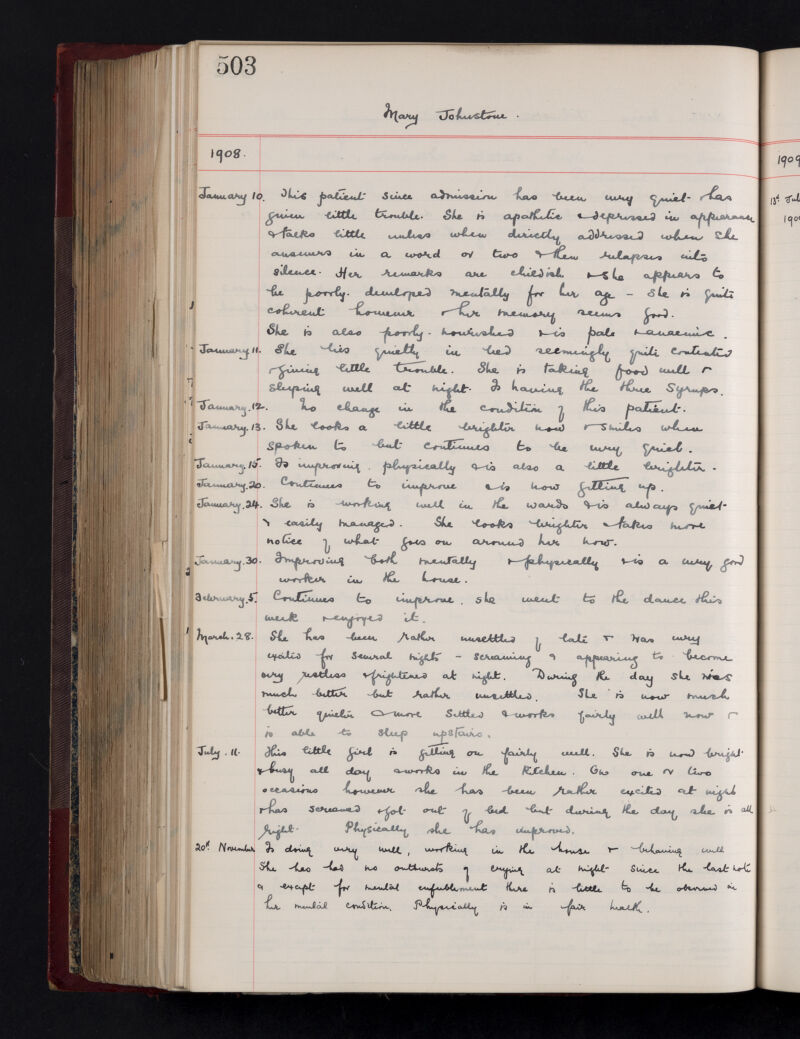 503
Mary Johnstone.
1908.
January 10. This patient since admission has been very quiet & has
given little trouble. She is apathetic & depressed in appearance
& talks little unless when directly addressed when she
answers in a word or two & then relapses into
silence. Her remarks are childish & she appears to
be poorly developed mentally for her age – she is quite
coherent however & her memory seems good.
She is also poorly nourished & is pale & anaemic.
January 11. She lies quietly in bed seemingly quite contented
& giving little trouble. She is taking food well &
sleeping well at night. Is having the three Syrups.
January. 12. No change in the condition of this patient.
January. 13. She looks a little brighter now & smiles when
spoken to but continues to be very quiet.
January. 15. Is improving physically & is also a little brighter.
January. 20. Continues to improve & is now getting up.
January. 24. She is working well in the wards & is always quiet
& easily managed. She looks brighter & takes more
notice of what goes on around her now.
January. 30. Improving both mentally & physically & is a very good
worker in the house.
February. 5. Continues to improve. she went to the dance this
week & enjoyed it.
March. 28. She has been rather unsettled of late & was very
excited for several nights – screaming & appearing to become
very restless & frightened at night. During the day she was
much better but rather unsettled. She is now much
better quieter & more settled & works fairly well now &
is able to sleep upstairs.
July. 11. This little girl is getting on fairly well. She is now bright
& busy all day & works in the kitchen. On one or two
occasions however she has been rather excited at night
& has screamed & got out of bed but during the day she is all
right. Physically she has improved.
20th November Is doing very well, working in the house & behaving well
She has had no outbursts of crying at night since the last note
& except for mental enfeeblement there is little to be observed in
her mental condition. Physically is in fair health.
1909
13th Jul
190